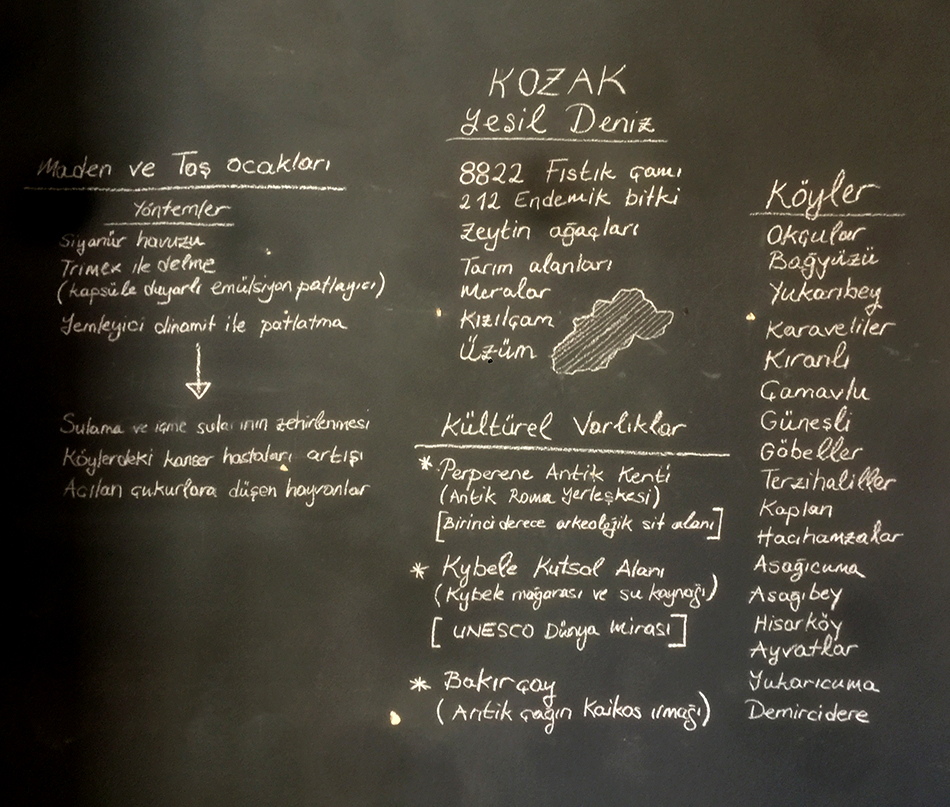 KOZAK
Yeşil Deniz
8822 Fıstık çamı
212 Endemik bitki
Zeytin ağaçları
Tarım alanları
Meralar
Kızılçam
Üzüm
Maden ve Taş ocakları
Yöntemler
Siyanür havuzu
Trimex ile delme
(kapsüle duyarlı emülsiyon patlayıcı)
Yemleyici dinamit ile patlatma
Sulama ve içme sularının zehirlenmesi
Köylerdeki kanser hastaları artışı
Açılan çukurlara düşen hayvanlar
Kültürel Varlıklar
* Perperene Antik Kenti
(Antik Roma Yerleşkesi)
[Birinci derece arkeolojik sit alanı]
* Kybele Kutsal Alanı
(Kybele mağarası ve su kaynağı)
[UNESCO Dünya Mirası]
* Bakırçay
(Antik çağın Kaikos ırmağı)
Köyler
Okçular
Bağyüzü
Yukarıbey
Karaveliler
Kıranlı
Çamavlu
Güneşli
Göbeller
Terzihaliller
Kaplan
Hacıhamzalar
Aşağıcuma
Aşağıbey
Hisarköy
Ayvatlar
Yukarıcuma
Demircidere